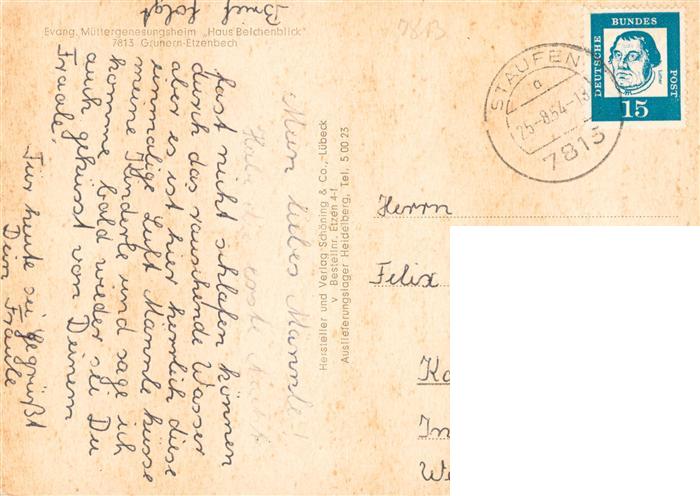 Evang. Müttergenesungsheim „Haus Belchenblick"
7813 Grunern-Etzenbach
78B
Mein liebes Mannle!
Habe die erste Nacht
fast nicht schlafen können
durch das rauschende Wasser
aber es ist hier herrlich diese
einmalige Luft Mannle küsse
meine Kinderle und sage ich
komme bald wieder sei Du
auch geküsst von Deinem
Fraule.
Für heute sei gegrüßt
Dein Fraule
Brief folgt
Hersteller und Verlag Schöning & Co., Lübeck
v Bestellnr. Etzen 4-1
Auslieferungslager Heidelberg, Tel. 5 00 23
STAUFEN
a
25-8.64-13
7813
DEUTSCHE
BUNDES
POST
15
Herrn
Felix
Ka
In
We